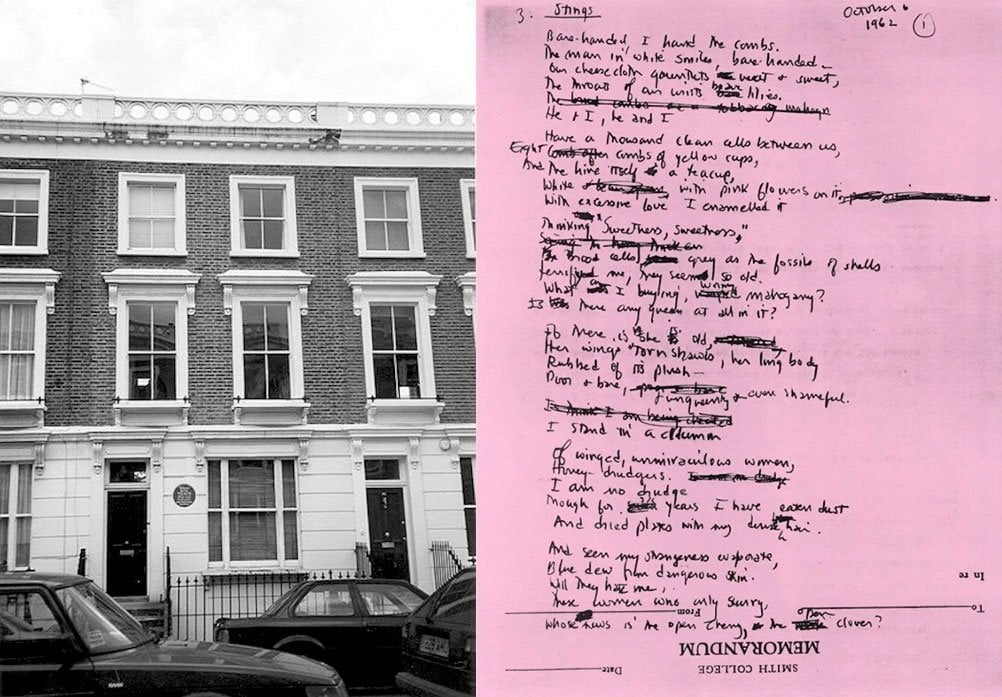 3. Stings
October 6
1962 1
Bare-handed, I hand the combs.
The man in white smiles, bare-handed—
Our cheesecloth gauntlets neat & sweet,
The throats of our wrists brave lilies.
The
He & I, he and I
Have a thousand clean cells between us,
Eight combs of yellow cups,
And the hive itself a teacup,
White with pink flowers on it,
With excessive love I enamelled it
Thinking "Sweetness, Sweetness,"
The Brood cells grey as the fossils of shells
terrify me, they seem so old.
What am I buying, wormy mahogany?
Is there any queen at all in it?
If there is she is old,
Her wings torn shawls, her long body
Rubbed of its plush—
Poor & bare, unqueenly & even shameful.
I think I am being cheated
I stand in a column
Of winged, unmiraculous women,
Honey-drudgers.
I am no drudge
Though for years I have eaten dust
And dried plates with my dense hair.
And seen my strangeness evaporate,
Blue dew from dangerous skin.
Will they hate me,
These women who only scurry,
Whose news is the open cherry, the open clover?
In re
To
From
MEMORANDUM
SMITH COLLEGE
Date